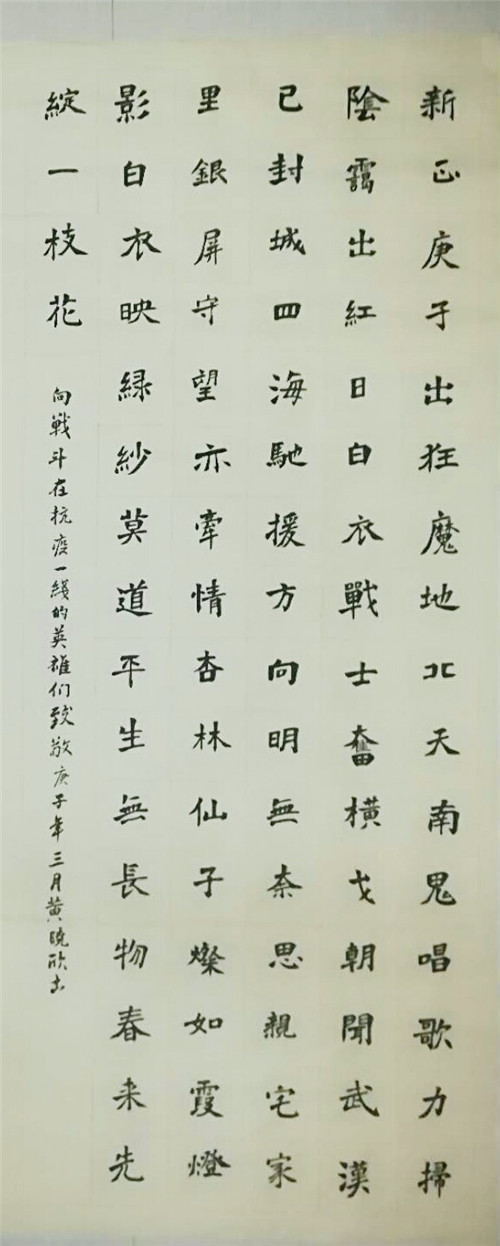 新正庚子出狂魔地北天南鬼唱歌力掃
陰霭出紅日白衣戰士奮橫戈朝聞武漢
已封城四海馳援方向明無奈思親宅家
里銀屏守望亦牽情杏林仙子燦如霞燈
影白衣映緑紗莫道平生無長物春来先
綻一枝花
向戰斗在抗疫一綫的英雄们致敬庚子年三月黄曉欣書